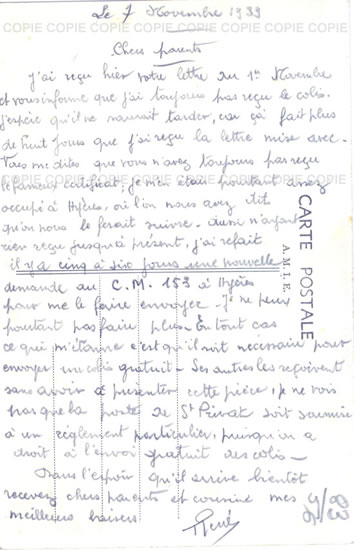 COPIE COPIE COPIE COPIE COPIE COPIE COPIE
Le 7 Novembre 1939
Chers parents
J'ai reçu hier votre lettre du 1er Novembre
et vous informe que j'ai toujours pas reçu le colis.
J'espère qu'il ne saurait tarder, car ça fait plus
de huit jours que j'ai reçu la lettre mise avec.
Vous me dites que vous n'avez toujours pas reçu
le fameux certificat, je m'en étais pourtant assez
occupé à Hyères, où l'on nous avez dit
qu'on nous le ferait suivre. Aussi n'ayant
rien reçu jusqu'à présent, j'ai refait
il y a cinq à six jours une nouvelle
demande au C.M. 153 à Hyères
pour me le faire envoyer. Je ne peux
pourtant pas faire plus. En tout cas
ce qui m'étonne c'est qu'il soit nécessaire pour
envoyer un colis gratuit. Les autres les reçoivent
sans avoir à présenter cette pièce, je ne vois
pas que la poste de St Privat soit soumise
à un règlement particulier, puisqu'on a
droit à l'envoi gratuit des colis.
Dans l'espoir qu'il arrive bientôt
recevez chers parents et cousine mes
meilleurs baisers
René
CARTE POSTALE
A.M.I.E.